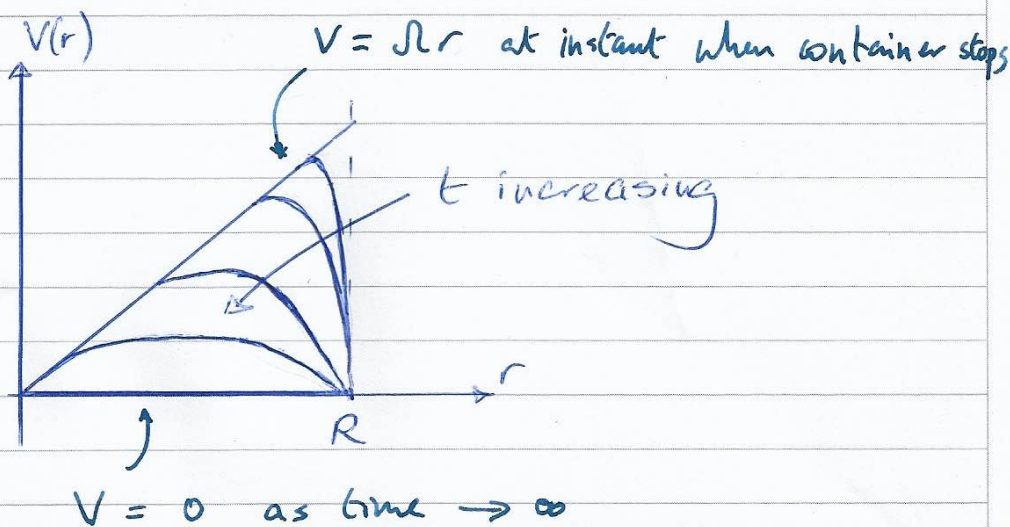 V(r)
V = Ωr at instant when container stops
t increasing
r
R
V = 0 as time → ∞